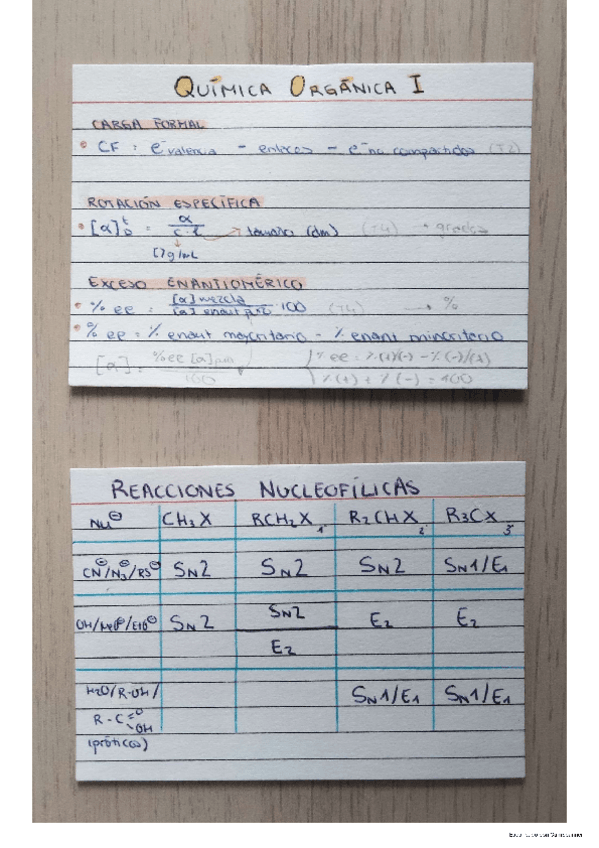 QUÍMICA ORGÁNICA I
CARGA FORMAL
• CF = e⁻ valencia - enlaces - e⁻ no compartidos (T2)
ROTACIÓN ESPECÍFICA
• [α]ᵗD = α / c·l → longitud (dm) (T4) → grados
[] g/mL
EXCESO ENANTIOMÉRICO
• % ee = [α] mezcla / [α] enant puro · 100 (T4) → %
• % ee = % enant mayoritario - % enant minoritario
[α] = %ee [α] puro / 100
% ee = %(+)/(-) - %(-)/(+)
%(+) + %(-) = 100
REACCIONES NUCLEOFÍLICAS
Nu⊖ CH3X RCH2X 1º R2CHX 2º R3CX 3º
CN⊖/N3⊖/RS⊖ SN2 SN2 SN2 SN1/E1
OH/MeO⊖/EtO⊖ SN2 SN2 E2 E2
E2
H2O/R-OH/ SN1/E1 SN1/E1
R-C=O
OH
(próticos)